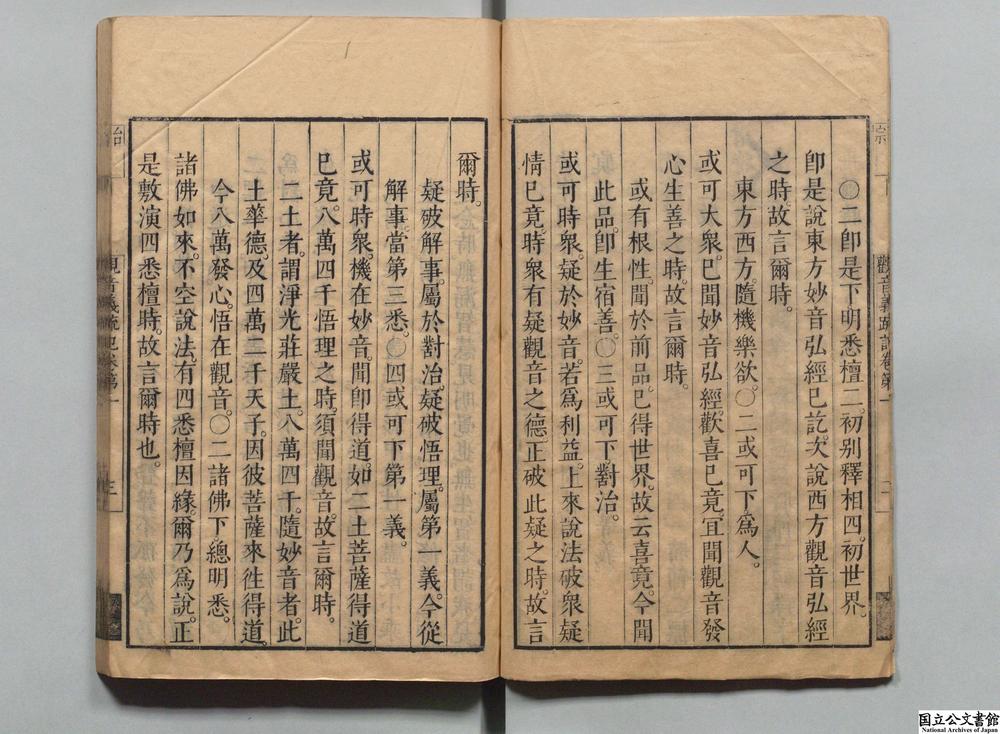 〇二卽是下明悉檀二。初別釋相四。初世界。
卽是說東方妙音弘經巳訖。次說西方觀音弘經
之時。故言爾時。
東方西方。隨機樂欲。〇二或可下爲人。
或可大衆。巳聞妙音弘經。歡喜巳竟。宜聞觀音發
心生善之時。故言爾時。
或有根性。聞於前品。巳得世界。故云喜竟。今聞
此品。卽生宿善。〇三或可下對治。
或可時衆。疑於妙音。若爲利益。上來說法破衆疑
情巳竟。時衆有疑觀音之德。正破此疑之時。故言
爾時。
疑破解事。屬於對治。疑破悟理。屬第一義。今從
解事。當第三悉。〇四或可下第一義。
或可時衆。機在妙音。聞卽得道。如二土菩薩得道
巳竟。八萬四千悟理之時。須聞觀音。故言爾時。
二土者。謂淨光莊嚴土。八萬四千。隨妙音者。此
土華德。及四萬二千天子。因彼菩薩來徃得道。
今八萬發心。悟在觀音。〇二諸佛下總明悉。
諸佛如來。不空說法。有四悉檀因緣。爾乃爲說。正
是敷演四悉檀時。故言爾時也。
觀音義疏記卷第一
国立公文書館
National Archives of Japan